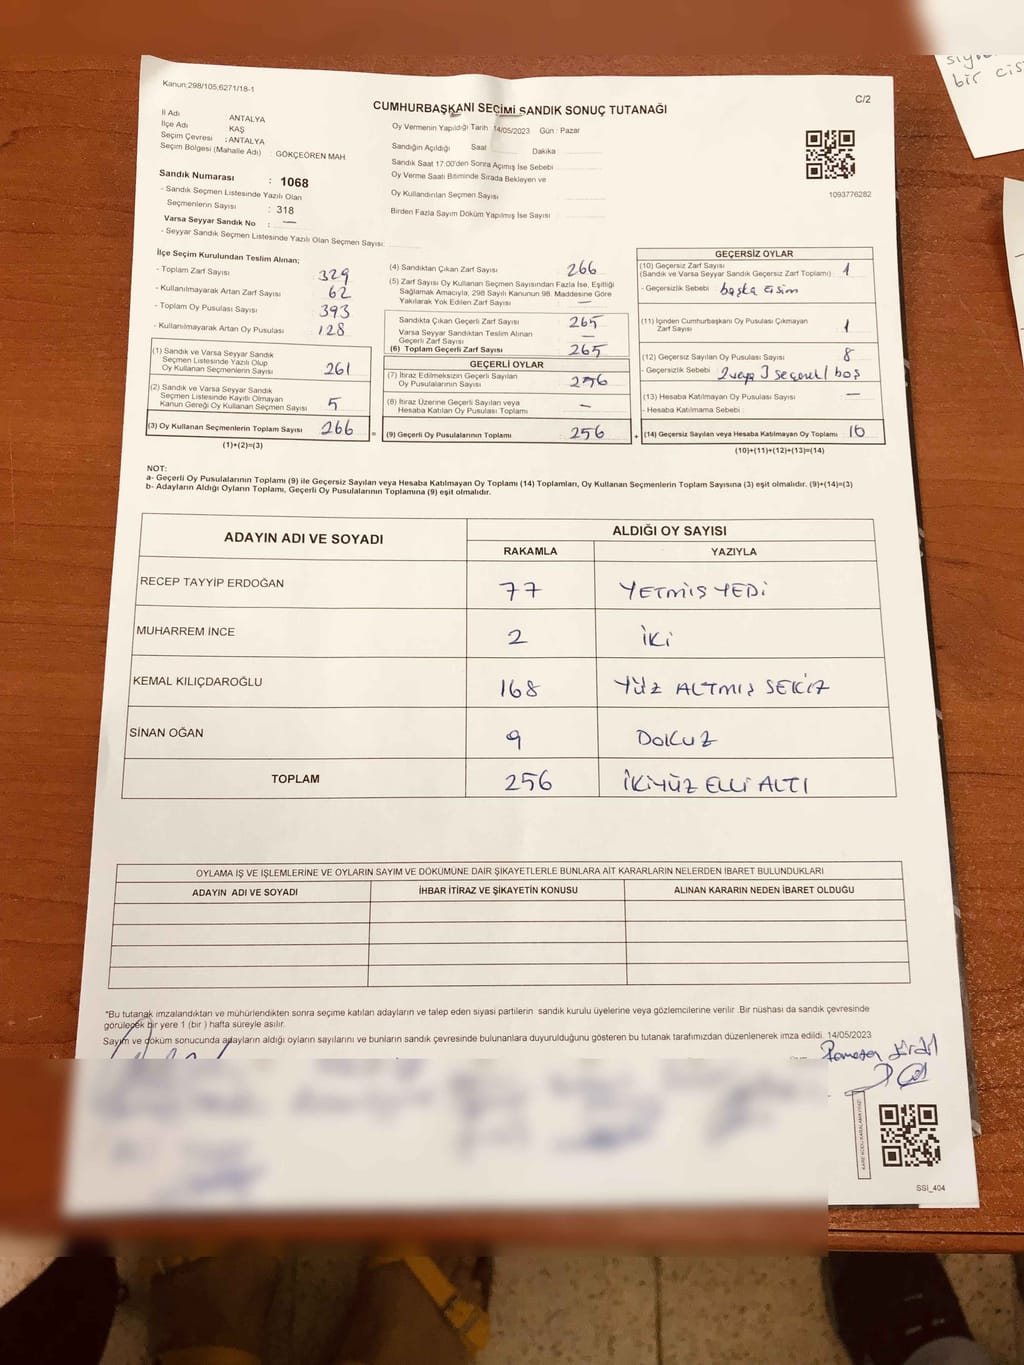 siyo
bir cis
Kanun;298/105,6271/18-1
C/2
CUMHURBAŞKANI SEÇİMİ SANDIK SONUÇ TUTANAĞI
İl Adı ANTALYA
İlçe Adı : KAŞ
Seçim Çevresi : ANTALYA
Seçim Bölgesi (Mahalle Adı) : GÖKÇEÖREN MAH
Oy Vermenin Yapıldığı Tarih 14/05/2023 Gün : Pazar
Sandığın Açıldığı Saat Dakika
Sandık Saat 17:00'den Sonra Açımış İse Sebebi
Oy Verme Saati Bitiminde Sırada Bekleyen ve
Oy Kullandırılan Seçmen Sayısı
Birden Fazla Sayım Döküm Yapılmış İse Sayısı
1093776282
Sandık Numarası : 1068
- Sandık Seçmen Listesinde Yazılı Olan
Seçmenlerin Sayısı : 318
Varsa Seyyar Sandık No : —
- Seyyar Sandık Seçmen Listesinde Yazılı Olan Seçmen Sayısı:
İlçe Seçim Kurulundan Teslim Alınan;
- Toplam Zarf Sayısı 329
- Kullanılmayarak Artan Zarf Sayısı 62
- Toplam Oy Pusulası Sayısı 393
- Kullanılmayarak Artan Oy Pusulası 128
(1) Sandık ve Varsa Seyyar Sandık
Seçmen Listesinde Yazılı Olup
Oy Kullanan Seçmenlerin Sayısı 261
(2) Sandık ve Varsa Seyyar Sandık
Seçmen Listesinde Kayıtlı Olmayan
Kanun Gereği Oy Kullanan Seçmen Sayısı 5
(3) Oy Kullanan Seçmenlerin Toplam Sayısı 266
(1)+(2)=(3)
(4) Sandıktan Çıkan Zarf Sayısı 266
(5) Zarf Sayısı Oy Kullanan Seçmen Sayısından Fazla İse, Eşitliği
Sağlamak Amacıyla, 298 Sayılı Kanunun 98. Maddesine Göre
Yakılarak Yok Edilen Zarf Sayısı —
Sandıkta Çıkan Geçerli Zarf Sayısı 265
Varsa Seyyar Sandıktan Teslim Alınan
Geçerli Zarf Sayısı —
(6) Toplam Geçerli Zarf Sayısı 265
GEÇERLİ OYLAR
(7) İtiraz Edilmeksizin Geçerli Sayılan
Oy Pusulalarının Sayısı
(8) İtiraz Üzerine Geçerli Sayılan veya
Hesaba Katılan Oy Pusulası Toplamı —
= (9) Geçerli Oy Pusulalarının Toplamı 256
GEÇERSİZ OYLAR
(10) Geçersiz Zarf Sayısı 1
(Sandık ve Varsa Seyyar Sandık Geçersiz Zarf Toplamı)
- Geçersizlik Sebebi başka cisim
(11) İçinden Cumhurbaşkanı Oy Pusulası Çıkmayan
Zarf Sayısı 1
(12) Geçersiz Sayılan Oy Pusulası Sayısı 8
- Geçersizlik Sebebi 2 veya 3 seçenek / boş
(13) Hesaba Katılmayan Oy Pusulası Sayısı —
- Hesaba Katılmama Sebebi
+ (14) Geçersiz Sayılan veya Hesaba Katılmayan Oy Toplamı 10
(10)+(11)+(12)+(13)=(14)
NOT:
a- Geçerli Oy Pusulalarının Toplamı (9) ile Geçersiz Sayılan veya Hesaba Katılmayan Oy Toplamı (14) Toplamları, Oy Kullanan Seçmenlerin Toplam Sayısına (3) eşit olmalıdır. (9)+(14)=(3)
b- Adayların Aldığı Oyların Toplamı, Geçerli Oy Pusulalarının Toplamına (9) eşit olmalıdır.
ADAYIN ADI VE SOYADI ALDIĞI OY SAYISI
RAKAMLA YAZIYLA
RECEP TAYYİP ERDOĞAN 77 YETMİŞ YEDİ
MUHARREM İNCE 2 İKİ
KEMAL KILIÇDAROĞLU 168 YÜZ ALTMIŞ SEKİZ
SİNAN OĞAN 9 DOKUZ
TOPLAM 256 İKİYÜZ ELLİ ALTI
OYLAMA İŞ VE İŞLEMLERİNE VE OYLARIN SAYIM VE DÖKÜMÜNE DAİR ŞİKAYETLERLE BUNLARA AİT KARARLARIN NELERDEN İBARET BULUNDUKLARI
ADAYIN ADI VE SOYADI İHBAR İTİRAZ VE ŞİKAYETİN KONUSU ALINAN KARARIN NEDEN İBARET OLDUĞU
"Bu tutanak imzalandıktan ve mühürlendikten sonra seçime katılan adayların ve talep eden siyasi partilerin sandık kurulu üyelerine veya gözlemcilerine verilir .Bir nüshası da sandık çevresinde
görülecek bir yere 1 (bir ) hafta süreyle asılır.
Sayım ve döküm sonucunda adayların aldığı oyların sayılarını ve bunların sandık çevresinde bulunanlara duyurulduğunu gösteren bu tutanak tarafımızdan düzenlenerek imza edildi. 14/05/2023
SSİ_404